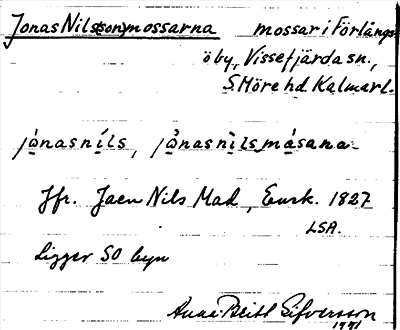 Jonas Nils(son)mossarna mossar i Förlångs-
öby, Vissefjärda sn.,
S. Möre hd. Kalmar l.
jònasníls, jònasnìlsmásana
Jfr. Jaen Nils Mad, Ensk. 1827
LSA.
Ligger SO byn
Anna-Britt Sifversson